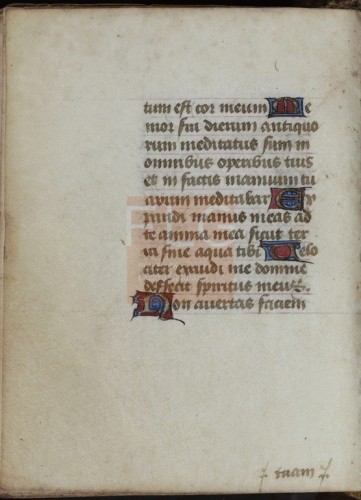 tum est cor meum Me
mor fui dierum antiquo
rum meditatus sum in
omnibus operibus tuis
et in factis manuum tu
arum meditabar Ex
pandi manus meas ad
te anima mea sicut ter
ra sine aqua tibi Velo
citer exaudi me domine
defecit spiritus meus
Non avertas faciem
tuam